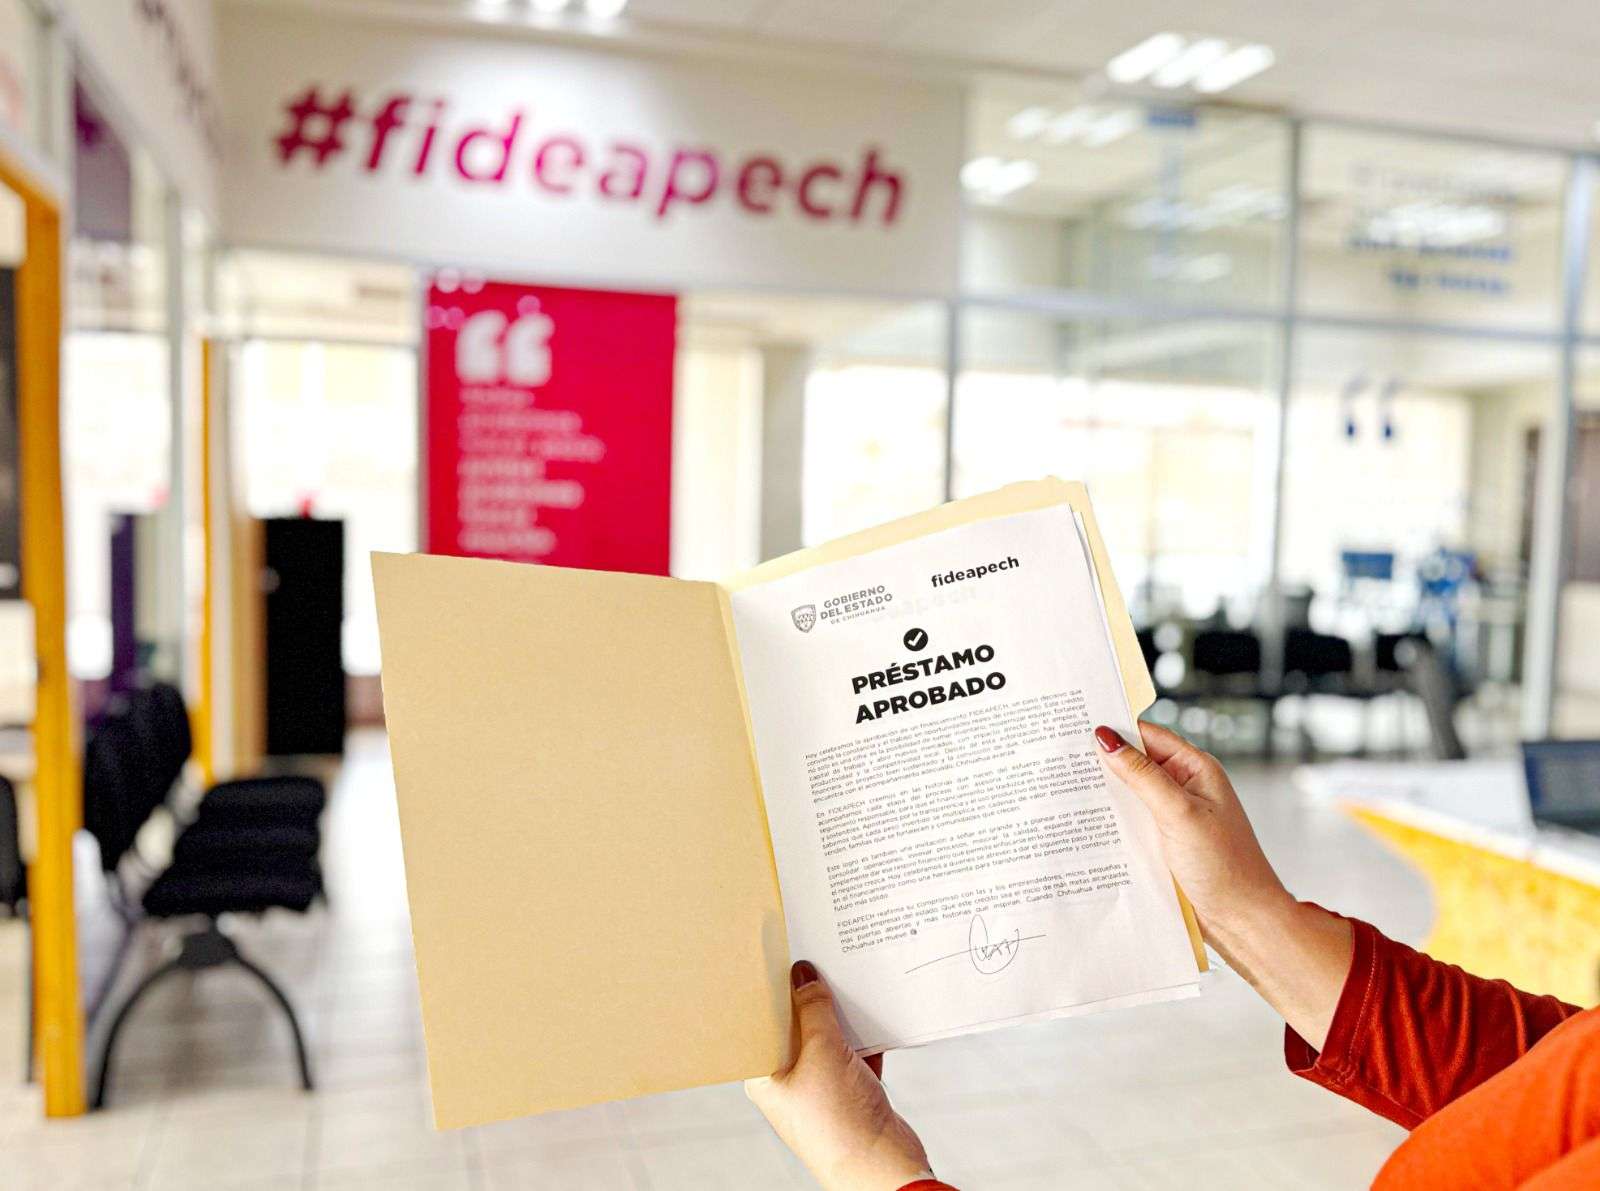 #fideapech
GOBIERNO
DEL ESTADO
DE CHIHUAHUA
fideapech
PRÉSTAMO
APROBADO
Hoy celebramos la aprobación de un financiamiento FIDEAPECH, un paso decisivo que
convierte la constancia y el trabajo en oportunidades reales de crecimiento. Este crédito
no solo es una cifra: es la posibilidad de sumar inventario, modernizar equipo, fortalecer
capital de trabajo y abrir nuevos mercados, con impacto directo en el empleo, la
productividad y la competitividad local. Detrás de esta autorización hay disciplina
financiera, un proyecto bien sustentado y la convicción de que, cuando el talento se
encuentra con el acompañamiento adecuado, Chihuahua avanza.
En FIDEAPECH creemos en las historias que nacen del esfuerzo diario. Por eso,
acompañamos cada etapa del proceso con asesoría cercana, criterios claros y
seguimiento responsable, para que el financiamiento se traduzca en resultados medibles
y sostenibles. Apostamos por la transparencia y el uso productivo de los recursos, porque
sabemos que cada peso invertido se multiplica en cadenas de valor: proveedores que
venden, familias que se fortalecen y comunidades que crecen.
Este logro es también una invitación a soñar en grande y a planear con inteligencia:
consolidar operaciones, innovar procesos, mejorar la calidad, expandir servicios o
simplemente dar ese respiro financiero que permite enfocarse en lo importante: hacer que
el negocio crezca. Hoy celebramos a quienes se atreven a dar el siguiente paso y confían
en el financiamiento como una herramienta para transformar su presente y construir un
futuro más sólido.
FIDEAPECH reafirma su compromiso con las y los emprendedores, micro, pequeñas y
medianas empresas del estado. Que este crédito sea el inicio de más metas alcanzadas,
más puertas abiertas y más historias que inspiran. Cuando Chihuahua emprende,
Chihuahua se mueve.